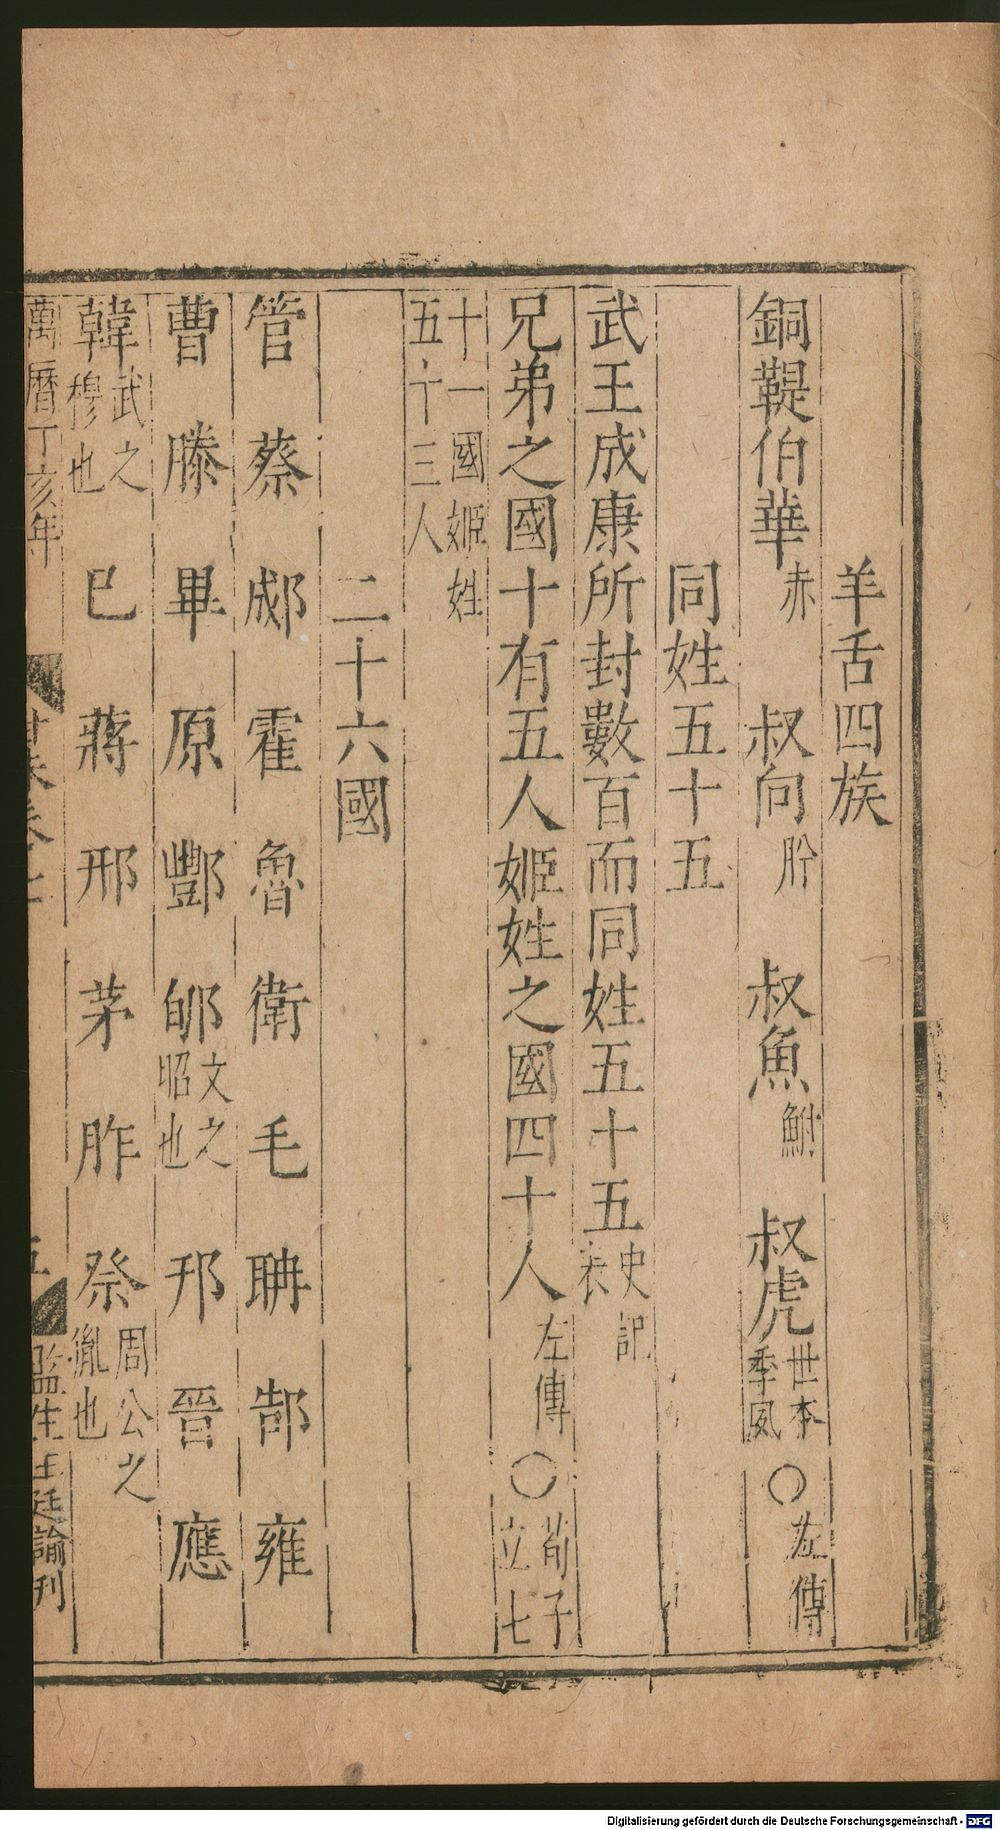 羊舌四族
銅鞮伯華赤 叔向肸 叔魚鮒 叔虎世本季夙○左傳
同姓五十五
武王成康所封數百而同姓五十五史記表
兄弟之國十有五人姬姓之國四十人左傳○荀子立七
十一國姬姓五十三人
二十六國
管 蔡 郕 霍 魯 衛 毛 聃 郜 雍
曹 滕 畢 原 酆 郇文之昭也 邘 晉 應
韓武之穆也 已 蔣 邢 茅 胙 祭周公之胤也
萬曆丁亥年 五 監生王廷諭刊
Digitalisierung gefördert durch die Deutsche Forschungsgemeinschaft - DFG